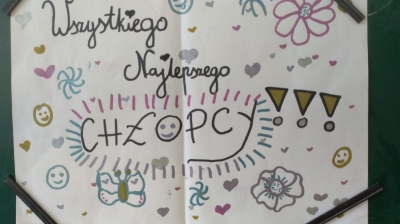 Wszystkiego
Najlepszego
CHŁOPCY!!!